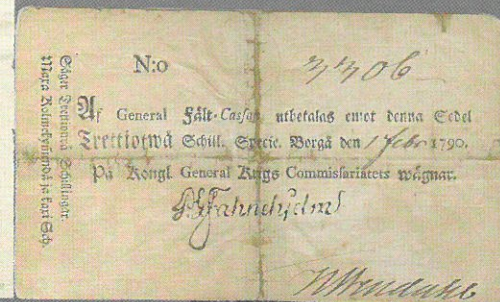 N:o 3306
Af General Fält-Cassan utbetalas emot denna Sedel
Trettiotwå Schill. Specie. Borgå den 1 Febr 1790.
På Kongl. General Krigs Commissariatets wägnar.
Fahnehjelm
Säger Trettiotwå Schillingar.
Maxa Kolmekymendä ja kaxi Sch.